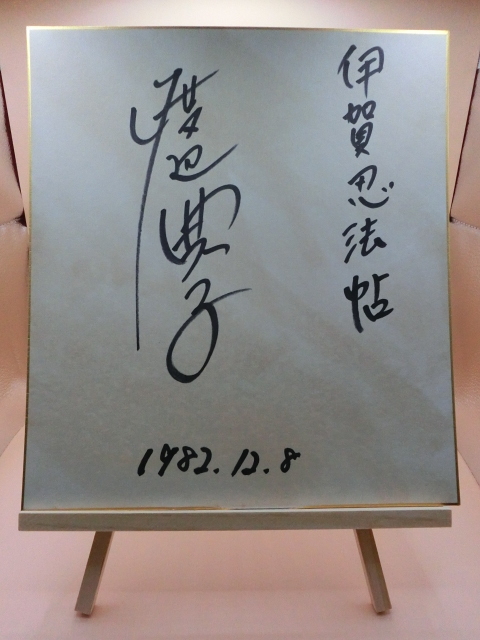 伊賀忍法帖
渡辺典子
1982.12.8